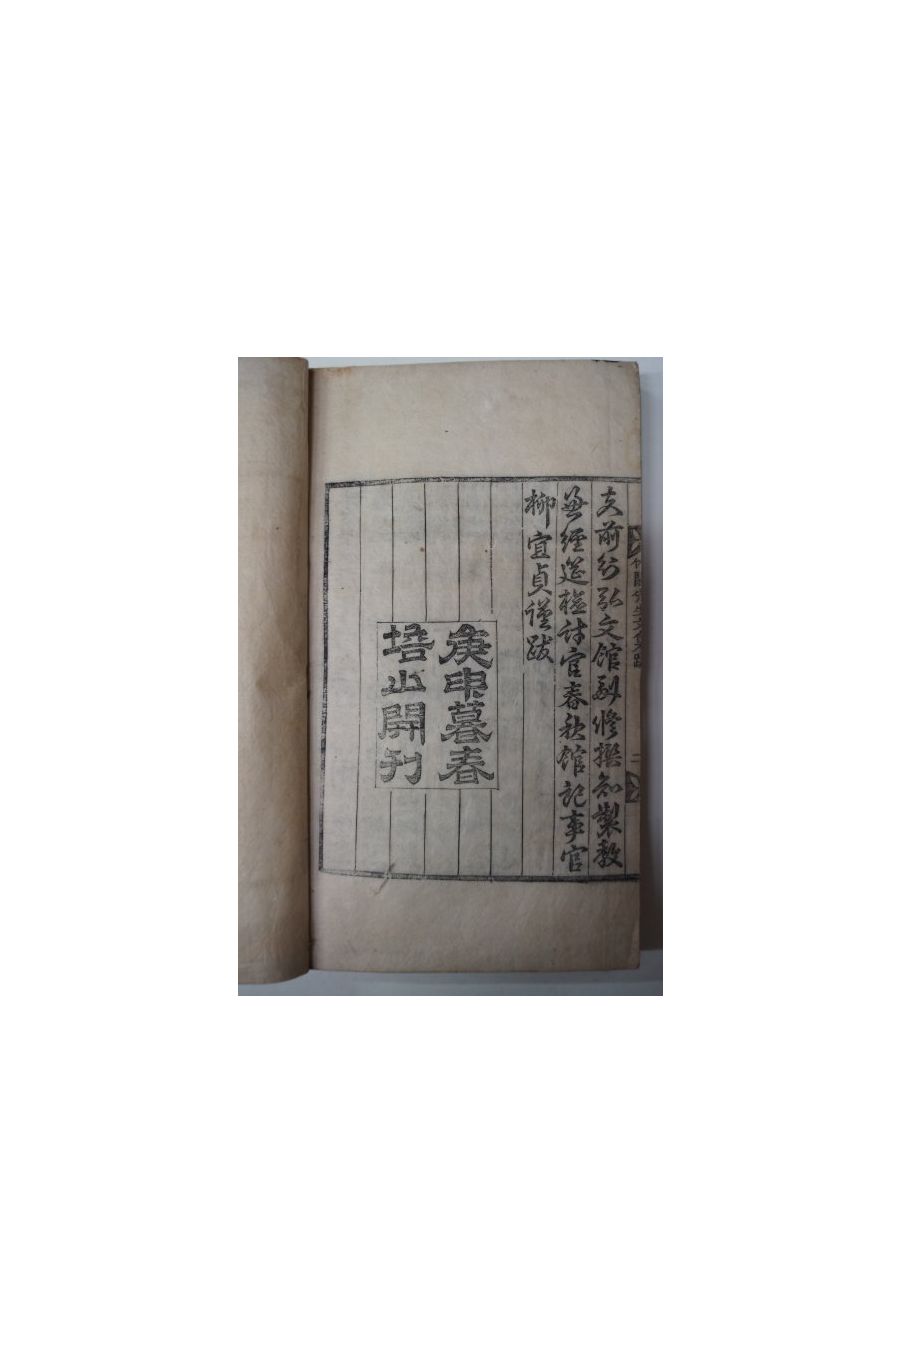 文前行弘文館副修撰知製敎
兼經筵檢討官春秋館記事官
柳宜貞謹跋
庚申暮春
培山開刊